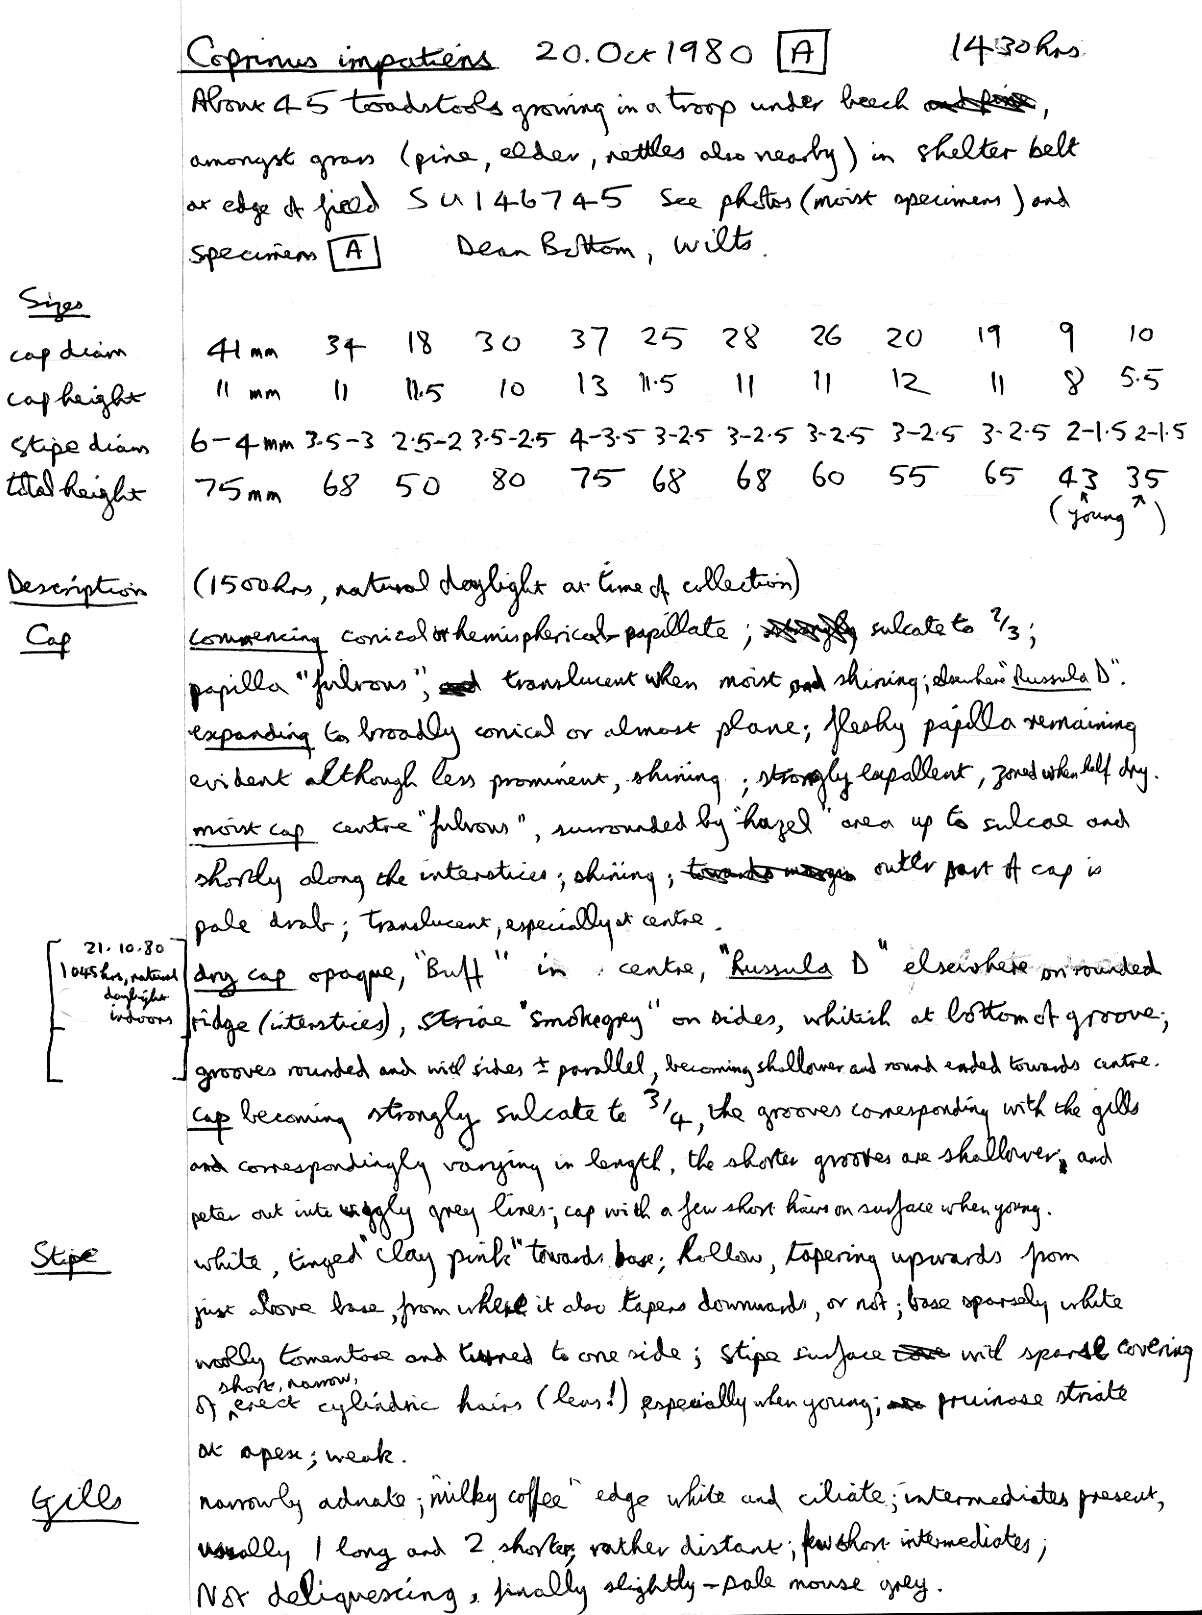 Coprinus impatiens 20.Oct 1980 [A] 1430hrs
About 45 toadstools growing in a troop under beech and pine,
amongst grass (pine, elder, nettles also nearby) in shelter belt
at edge of field SU146745 See photos (moist specimens) and
specimens [A] Dean Bottom, Wilts.
Sizes
cap diam 41mm 34 18 30 37 25 28 26 20 19 9 10
cap height 11 mm 11 11.5 10 13 11.5 11 11 12 11 8 5.5
stipe diam 6-4mm 3.5-3 2.5-2 3.5-2.5 4-3.5 3-2.5 3-2.5 3-2.5 3-2.5 3-2.5 2-1.5 2-1.5
total height 75mm 68 50 80 75 68 68 60 55 65 43 35
(young)
Description (1500hrs, natural daylight at time of collection)
Cap commencing conical or hemispherical-papillate; strongly sulcate to 2/3;
papilla "fulvous", and translucent when moist and shining; elsewhere "Russula D".
expanding to broadly conical or almost plane; fleshy papilla remaining
evident although less prominent, shining; strongly expallent, zoned when half dry.
moist cap centre "fulvous", surrounded by "hazel" area up to sulcae and
shortly along the interstices; shining; towards margin outer part of cap is
pale drab; translucent, especially at centre.
21.10.80
1045hrs, natural
daylight
indoors
dry cap opaque, "Buff" in centre, "Russula D" elsewhere on rounded
ridge (interstices), striae "smoke grey" on sides, whitish at bottom of groove;
grooves rounded and with sides ± parallel, becoming shallower and round ended towards centre.
cap becoming strongly sulcate to 3/4, the grooves corresponding with the gills
and correspondingly varying in length, the shorter grooves are shallower, and
peter out into wiggly grey lines; cap with a few short hairs on surface when young.
Stipe white, tinged "clay pink" towards base; hollow, tapering upwards from
just above base, from where it also tapers downwards, or not; base sparsely white
woolly tomentose and turned to one side; stipe surface with sparse covering
of short, narrow, erect cylindric hairs (lens!) especially when young; pruinose striate
at apex; weak.
Gills narrowly adnate; "milky coffee" edge white and ciliate; intermediates present,
usually 1 long and 2 shorter, rather distant; few short intermediates;
Not deliquescing, finally slightly-pale mouse grey.